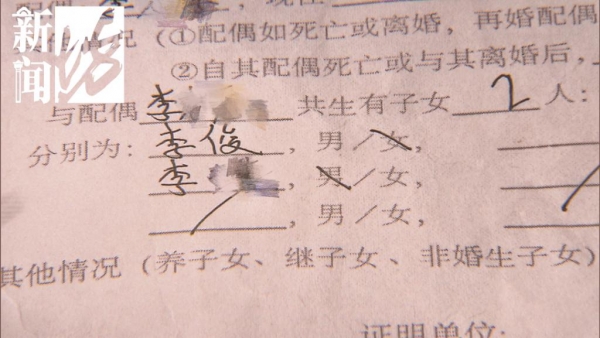 新闻坊
情况（①配偶如死亡或离婚，再婚配偶
②自其配偶死亡或与其离婚后，
与配偶李 共生有子女2人：
分别为：李俊，男／女，
李，男／女，
／，男／女，
其他情况（养子女、继子女、非婚生子女）
证明单位：